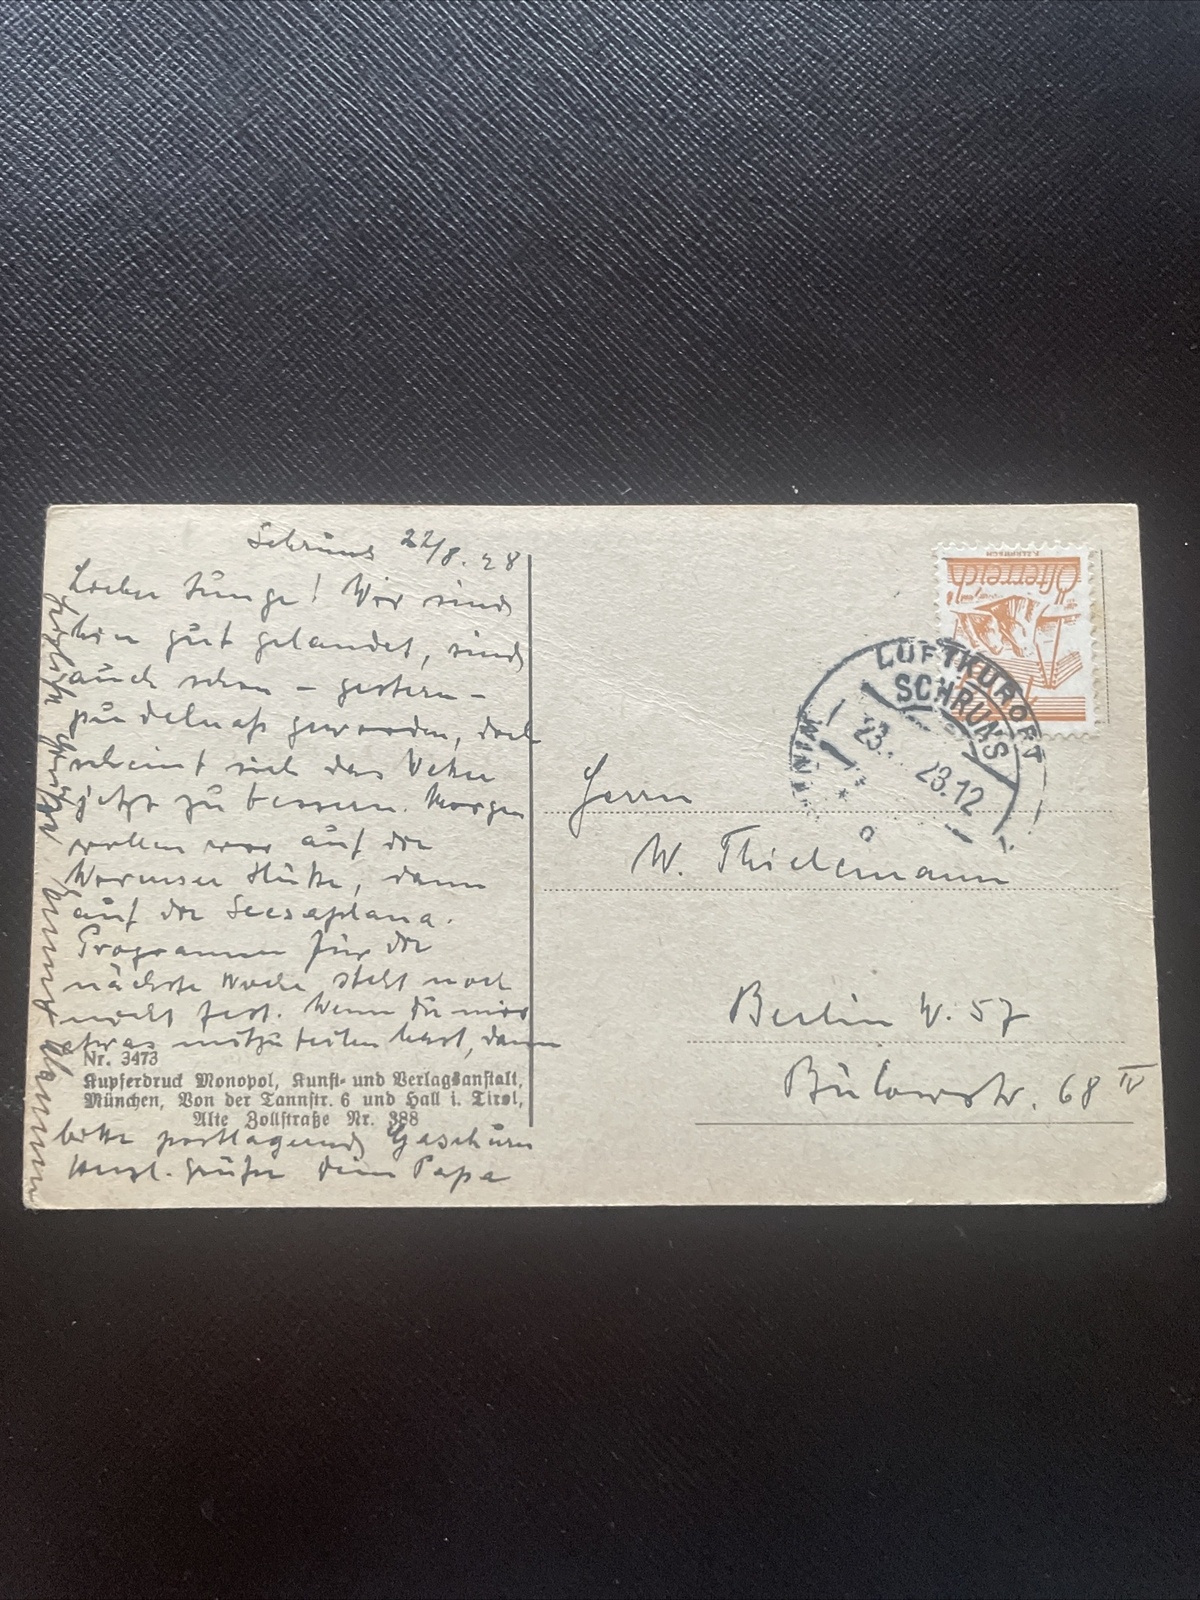 Schruns 22/8.28
Lieber Junge! Wir sind
hier gut gelandet, sind
auch schon – gestern –
pudelnaß geworden, doch
scheint sich das Wetter
jetzt zu bessern. Morgen
wollen wir auf die
Wormser Hütte, dann
auf die Scesaplana.
Programm für die
nächste Woche steht noch
nicht fest. Wenn Du mir
etwas mitzuteilen hast, dann
Nr. 3473
Kupferdruck Monopol, Kunst- und Verlagsanstalt,
München, Von der Tannstr. 6 und Hall i. Tirol,
Alte Zollstraße Nr. 388
bitte postlagernd Gaschurn
Herzl. Grüße Dein Papa
Österreich
LUFTKURORT
SCHRUNS
23. 28.12
Herrn
W. Thielemann
Berlin W. 57
Bülowstr. 68 IV